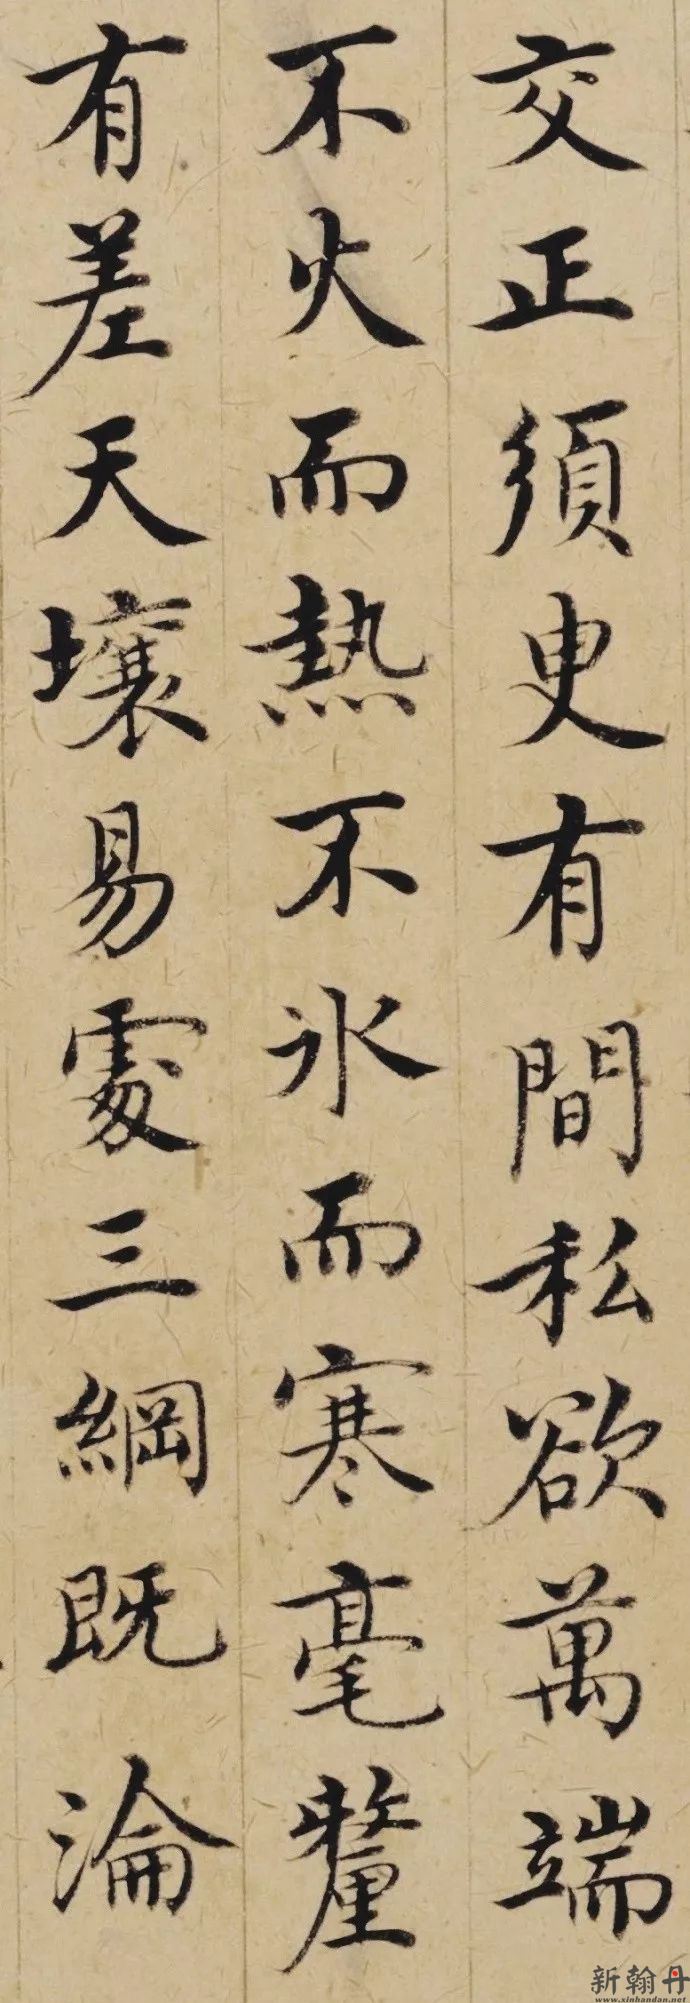 交正須臾有間私欲萬端
不火而熱不氷而寒毫釐
有差天壤易處三綱既淪
新翰丹
www.xinhandan.net